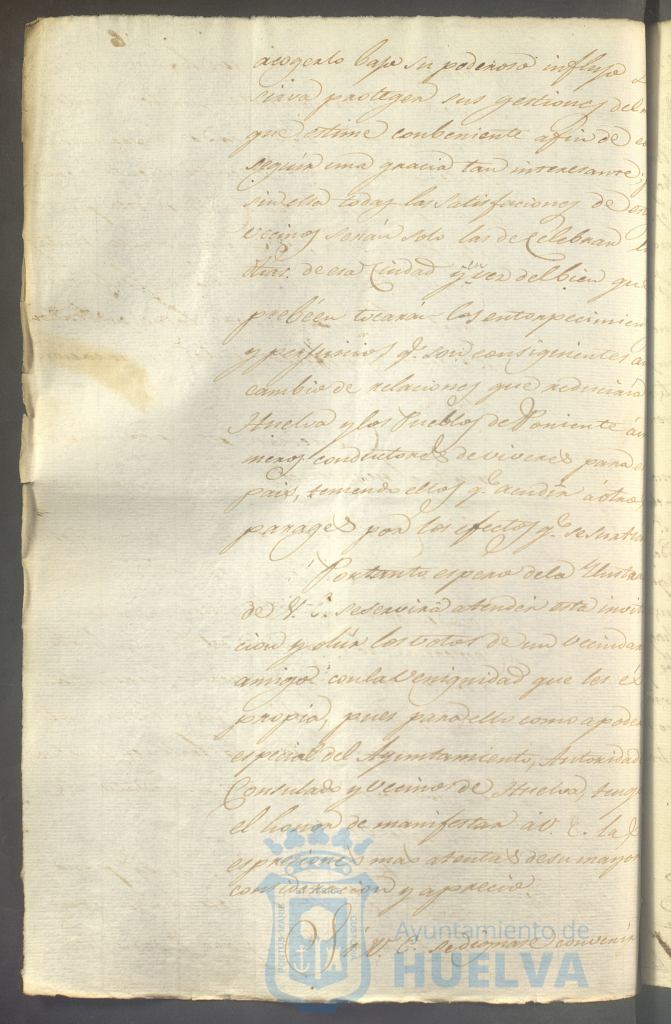 acogerlo bajo su poderoso influjo
sirva proteger sus gestiones del
que estime conbeniente afin de
seguir una gracia tan interesante,
sin ella todas las satisfacciones de
vecinos serán solo las de celebrar
dias de esa Ciudad y en vez del bien que
prebéen tocarán los entorpecimien
y perjuicios q.e son consiguientes a
cambio de relaciones que reduciria
Huelva y los Pueblos de Poniente á
meros conductores de viveres para
pais, teniendo ellos q.e acudir á otros
parages por los efectos q.e se surten
Portanto espero dela Ilustra
de V. E. se servirá atender esta invit
cion y oir los votos de un vecindar
amigo con la veniguidad que les és
propia, pues para ello como apode
especial del Ayuntamiento, Autoridad
Consulado y vecinos de Huelva, teng
el honor de manifestar á V. E. la
espresiones mas atentas de su mayor
consideracion y aprecio.
Si V. E. se dignase convenir
PORTUS MARIS
Ayuntamiento de
HUELVA